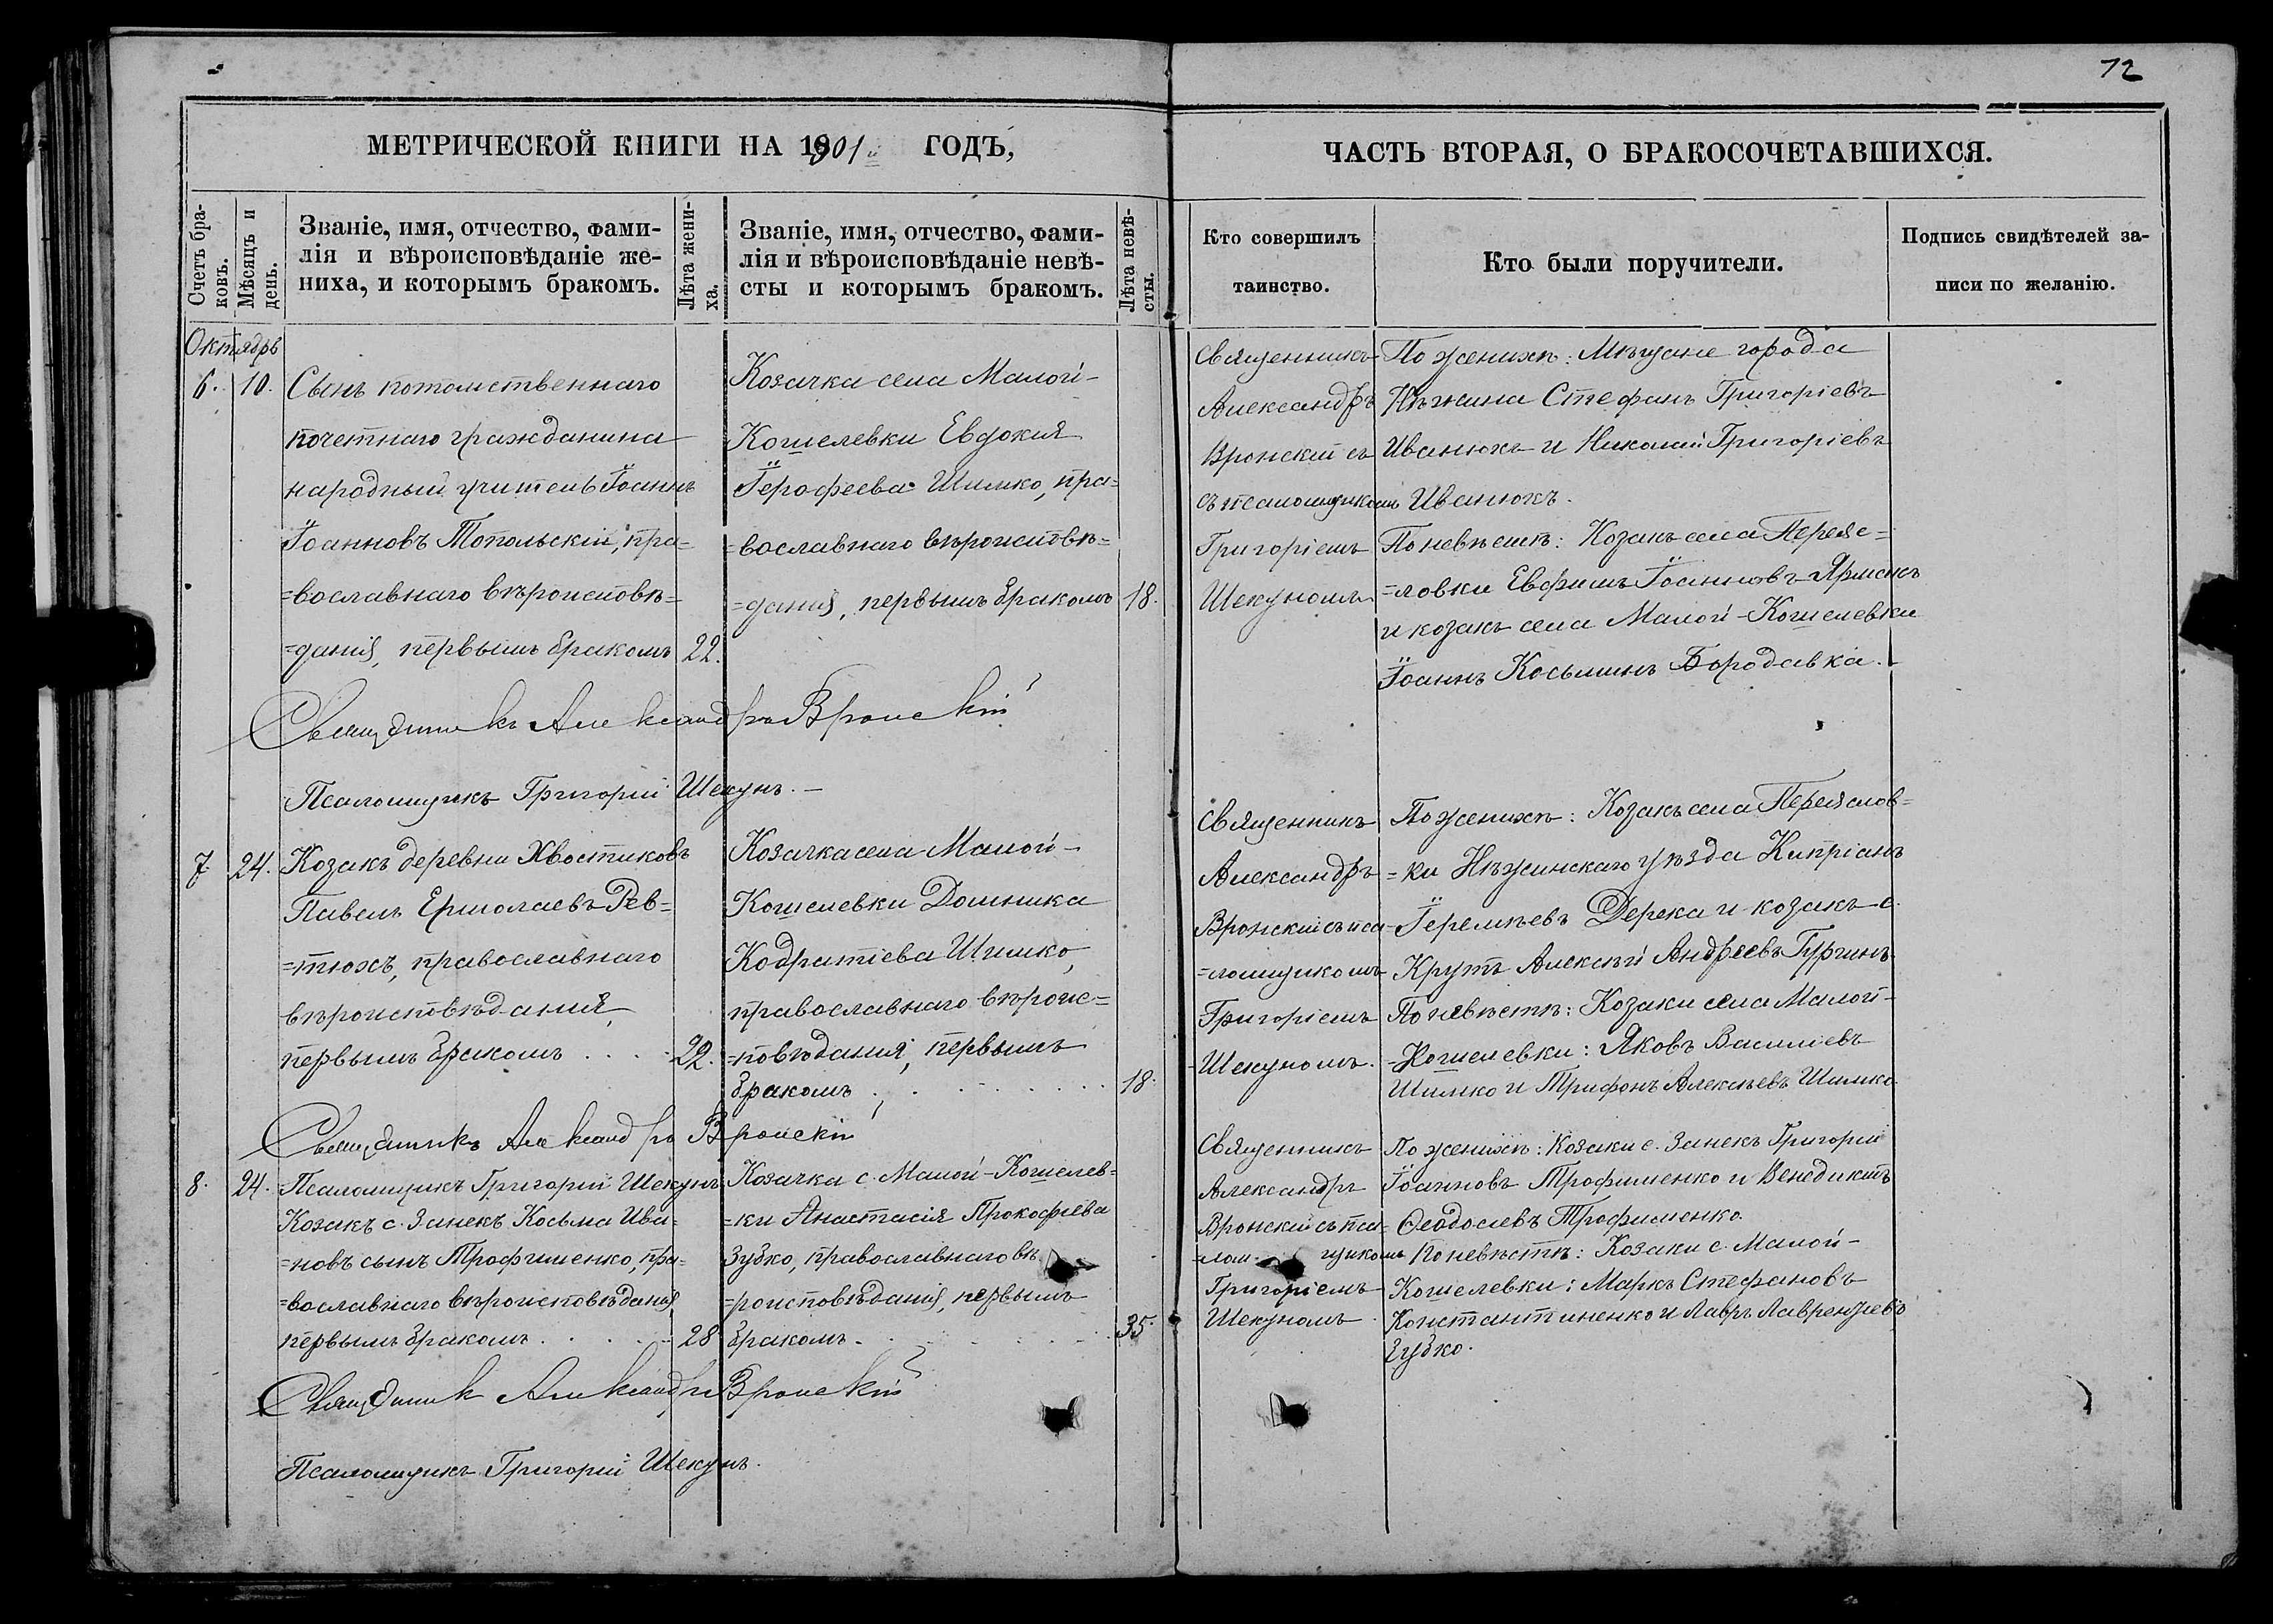 72
МЕТРИЧЕСКОЙ КНИГИ НА 1901й ГОДЪ,
ЧАСТЬ ВТОРАЯ, О БРАКОСОЧЕТАВШИХСЯ.
Счетъ бра-
ковъ.
Мѣсяцъ и
день.
Званіе, имя, отчество, фами-
лія и вѣроисповѣданіе же-
ниха, и которымъ бракомъ.
Лѣта жени-
ха.
Званіе, имя, отчество, фами-
лія и вѣроисповѣданіе невѣ-
сты и которымъ бракомъ.
Лѣта невѣ-
сты.
Кто совершилъ
таинство.
Кто были поручители.
Подпись свидѣтелей за-
писи по желанію.
Октябрь
6. 10. Сынъ потомственнаго
почетнаго гражданина
народный учитель Іоаннъ
Іоанновъ Топольскій, пра=
=вославнаго вѣроисповѣ=
=данія, первымъ бракомъ 22.
Козачка села Малой-
Кошелевки Евдокия
Іерофеева Шимко, пра=
=вославнаго вѣроисповѣ=
=данія, первымъ бракомъ 18.
Священникъ
Александръ
Вронскій съ
съ псаломщикомъ
Григоріемъ
Шекуномъ
По женихѣ: Мѣщане города
Нѣжина Стефанъ Григоріевъ
Иванюкъ и Николай Григоріевъ
Иванюкъ.
По невѣстѣ: Козакъ села Переяс=
=ловки Евфимъ Іоанновъ Ярмакъ
и козакъ села Малой-Кошелевки
Іоаннъ Косьминъ Бородавка.
Священникъ Александръ Вронскій
Псаломщикъ Григорій Шекунъ.
7 24. Козакъ деревни Хвостиковъ
Павелъ Ермолаевъ Рев=
=тюхъ, православнаго
вѣроисповѣданія,
первымъ бракомъ . . . . 22.
Козачка села Малой-
Кошелевки Домника
Кодратіева Шимко,
православнаго вѣроис=
=повѣданія, первымъ
бракомъ . . . . . . 18.
Священникъ
Александръ
Вронскій съ пса-
=ломщикомъ
Григоріемъ
Шекуномъ.
По женихѣ: Козакъ села Переяслов=
=ки Нѣжинскаго уѣзда Кипріанъ
Іеремѣевъ Дерека и козакъ с.
Крутъ Алексѣй Андреевъ Гурчинъ
По невѣстѣ: Козаки села Малой-
-Кошелевки: Яковъ Василіевъ
Шимко и Трифонъ Алексѣевъ Шимко.
Священникъ Александръ Вронскій
Псаломщикъ Григорій Шекунъ
8. 24. Козакъ с. Занекъ Косьма Ива=
=новъ сынъ Трофименко, пра=
=вославнаго вѣроисповѣданія,
первымъ бракомъ . . . . 28
Козачка с. Малой-Кошелев=
=ки Анастасія Прокофіева
Зубко, православнаго вѣ
=роисповѣданія, первымъ
бракомъ . . . . 35.
Священникъ
Александръ
Вронскій съ пса=
-лом- щикомъ
Григоріемъ
Шекуномъ
По женихѣ: Козаки с. Занекъ Григорій
Іоанновъ Трофименко и Венедиктъ
Ѳеодосіевъ Трофименко.
По невѣстѣ: Козаки с. Малой-
Кошелевки: Маркъ Стефановъ
Константиненко и Лавръ Лаврентіевъ
Зубко.
Священникъ Александръ Вронскій
Псаломщикъ Григорій Шекунъ.